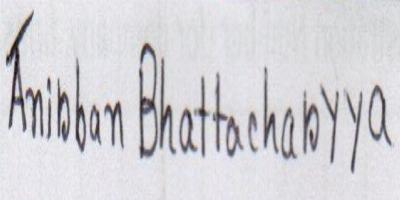 Anirban Bhattacharyya